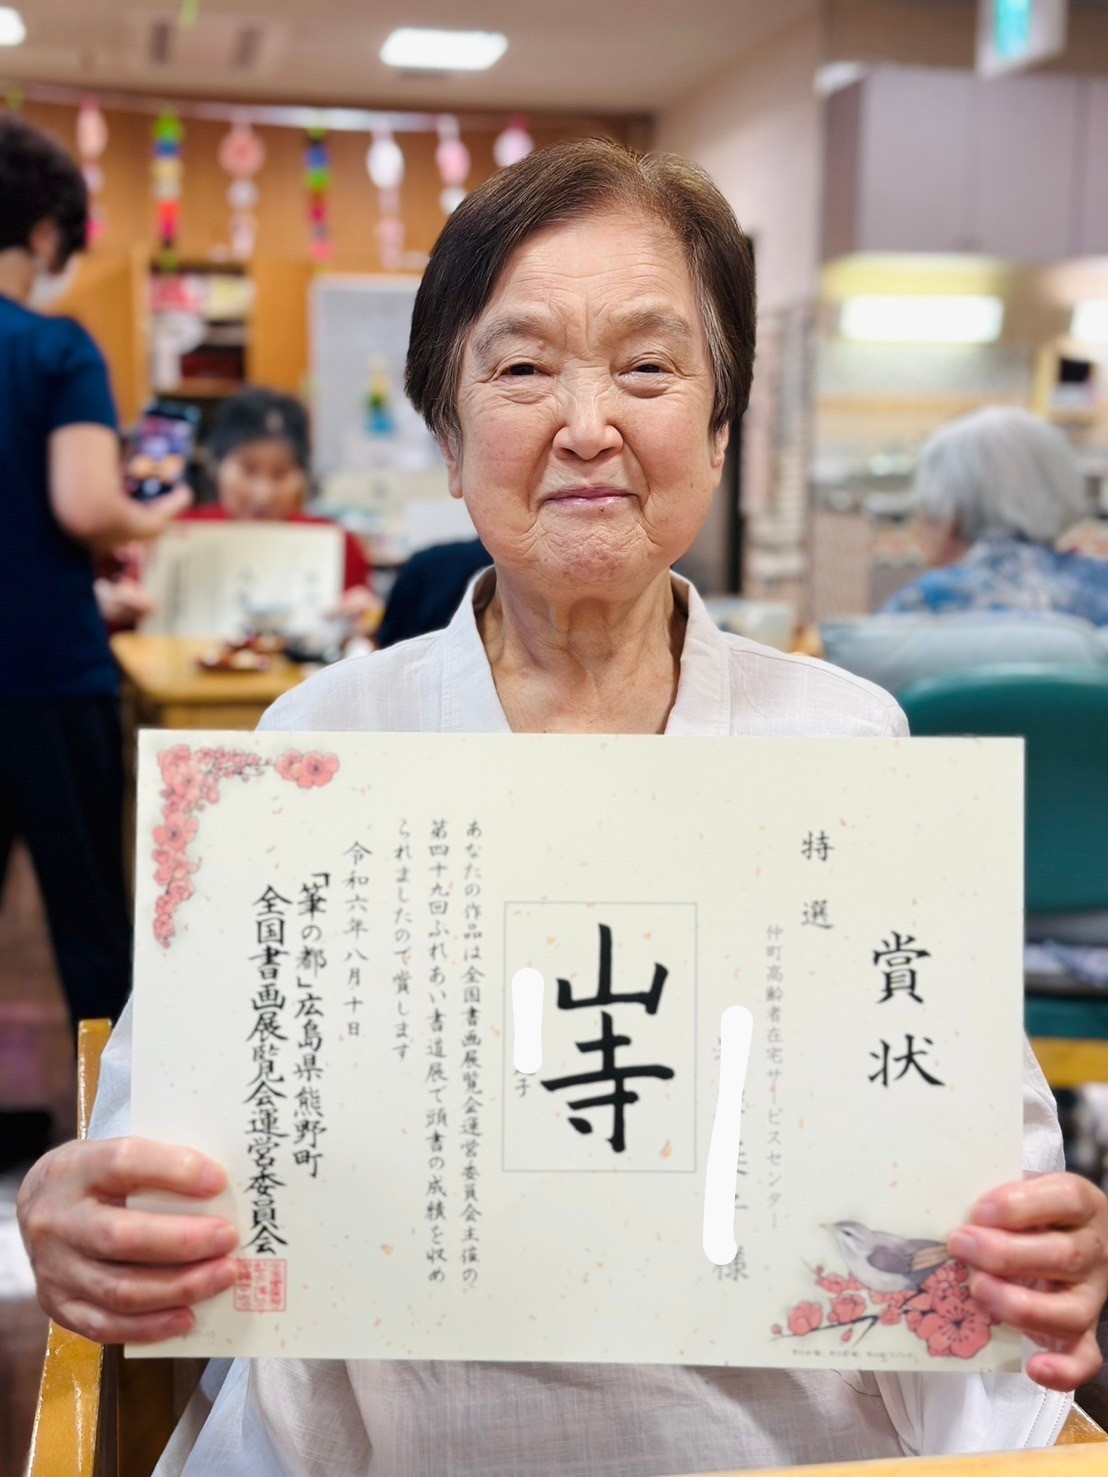 賞状
特選
仲町高齢者在宅サービスセンター
様
山寺
子
あなたの作品は全国書画展覧会運営委員会主催の
第四十九回ふれあい書道展で頭書の成績を収め
られましたので賞します
令和六年八月十日
「筆の都」広島県熊野町
全国書画展覧会運営委員会